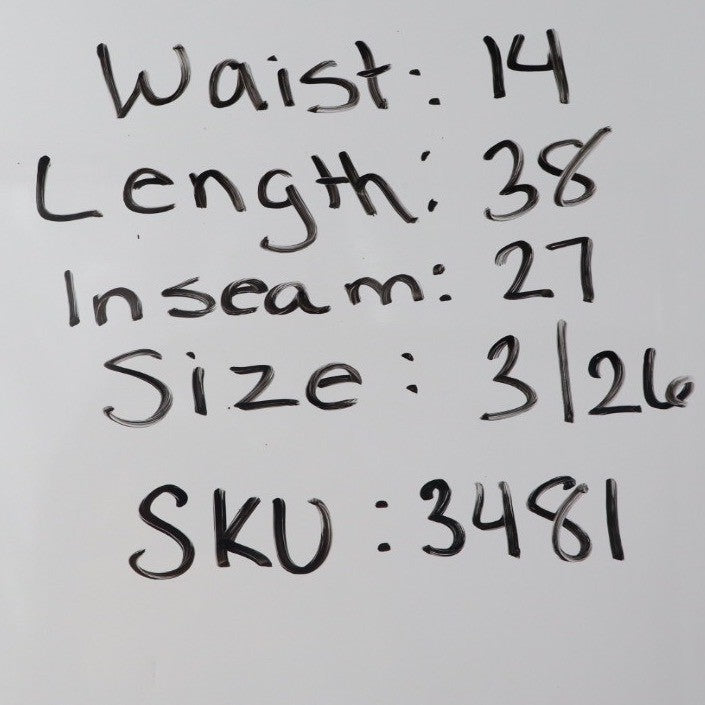 Waist: 14
Length: 38
Inseam: 27
Size: 3/26
SKU: 3481